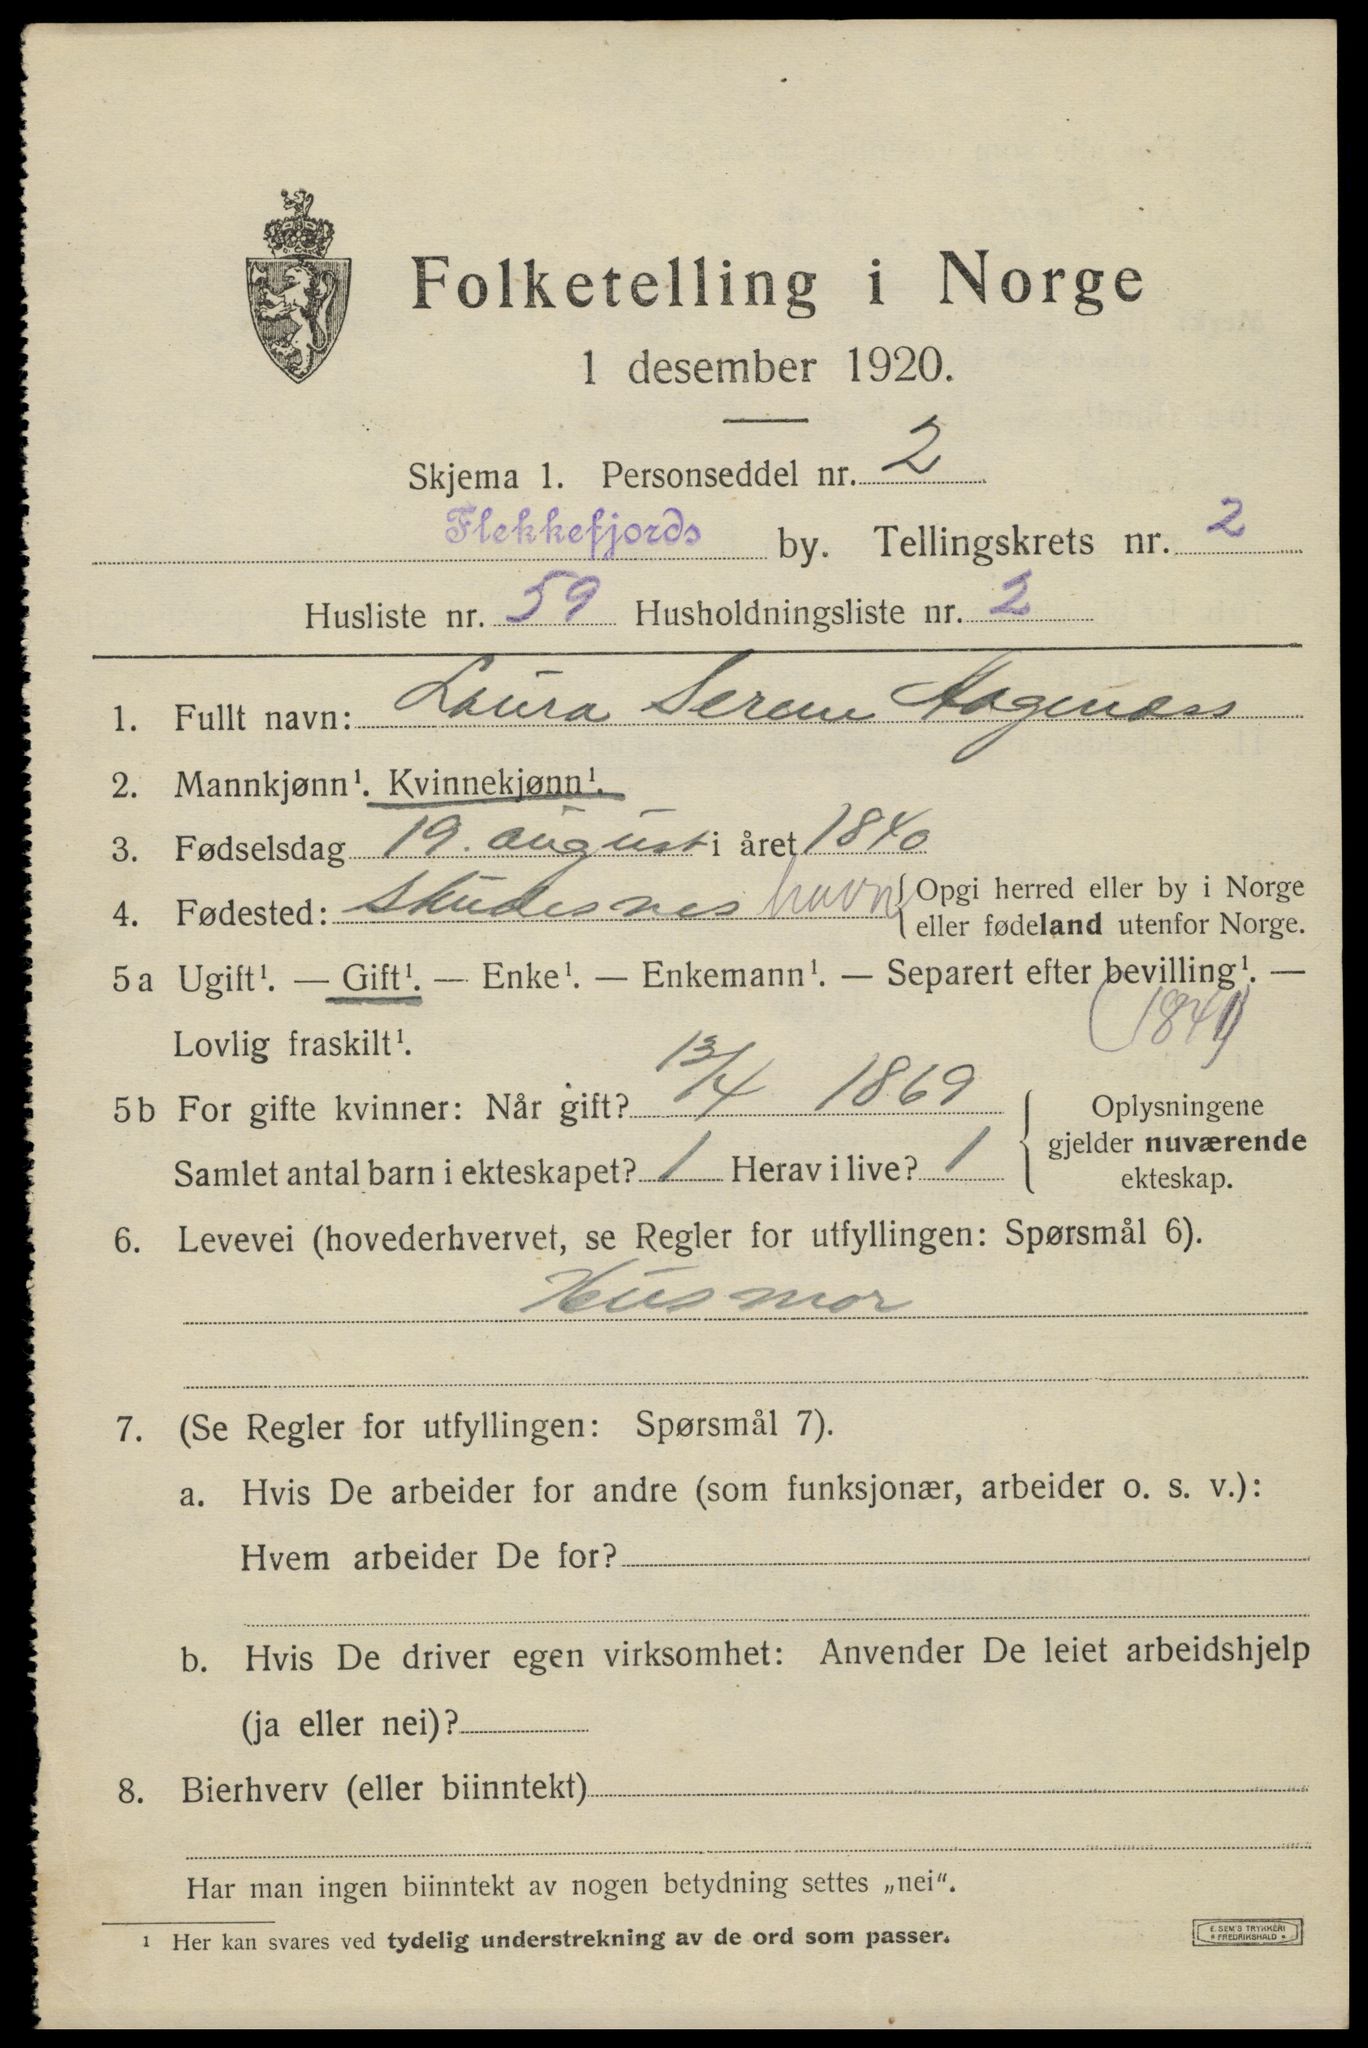 Folketelling i Norge
1 desember 1920.
Skjema 1. Personseddel nr. 2
Flekkefjords by. Tellingskrets nr. 2
Husliste nr. 59 Husholdningsliste nr. 2
1. Fullt navn: Laura Serene Hagenæss
2. Mannkjønn¹. Kvinnekjønn¹.
3. Fødselsdag 19. august i året 1840
4. Fødested: Skudesnes havn { Opgi herred eller by i Norge
eller fødeland utenfor Norge.
5a Ugift¹. — Gift¹. — Enke¹. — Enkemann¹. — Separert efter bevilling¹. —
Lovlig fraskilt¹.
5b For gifte kvinner: Når gift? 13/4 1869 { Oplysningene
gjelder nuværende
Samlet antal barn i ekteskapet? 1 Herav i live? 1
ekteskap.
6. Levevei (hovederhvervet, se Regler for utfyllingen: Spørsmål 6).
Husmor
7. (Se Regler for utfyllingen: Spørsmål 7).
a. Hvis De arbeider for andre (som funksjonær, arbeider o. s. v.):
Hvem arbeider De for?
b. Hvis De driver egen virksomhet: Anvender De leiet arbeidshjelp
(ja eller nei)?
8. Bierhverv (eller biinntekt)
Har man ingen biinntekt av nogen betydning settes „nei“.
¹ Her kan svares ved tydelig understrekning av de ord som passer.
E. SEM'S TRYKKERI
FREDRIKSHALD